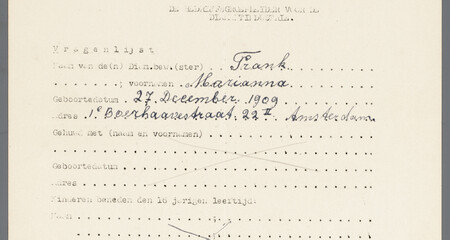 Vragenlijst
Naam van de(n) Dien.bew.(ster) Frank
; voornamen Marianna
Geboortedatum 27 December 1909
Adres 1e Boerhaavestraat 22 II Amsterdam
Gehuwd met (naam en voornamen)
Geboortedatum
Adres
Kinderen beneden den 16 jarigen leeftijd:
Naam